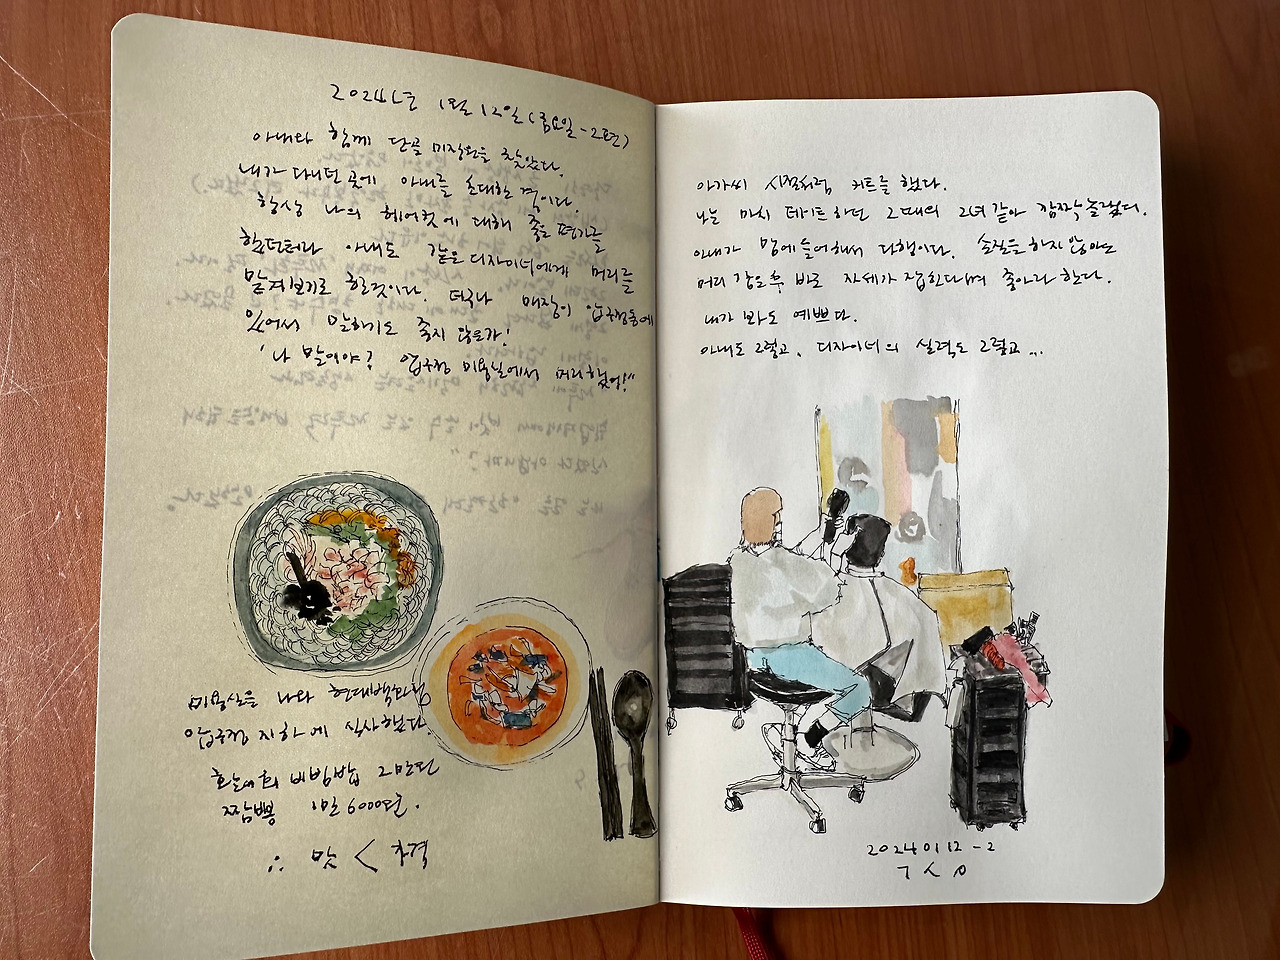 2024년 1월 12일 (금요일-2편)
아내와 함께 단골 미장원을 찾았다.
내가 다니던 곳에 아내를 초대한 격이다.
항상 나의 헤어컷에 대해 좋은 평가를
했던터라 아내도 같은 디자이너에게 머리를
맡겨보기로 한것이다. 더구나 매장이 압구정동에
있어서 말하기도 좋지 않은가!
'나 말이야? 압구정 미용실에서 머리했어!"
미용실을 나와 현대백화점
압구정 지하에 식사했다.
회덮밥 2만원
짬뽕 1만6000원.
∴ 맛 < 가격
아가씨 시절처럼 커트를 했다.
나는 마치 데이트하던 그때의 그녀 같아 깜짝 놀랬다.
아내가 맘에 들어해서 다행이다. 손질을 하지 않아도
머리 감은 후 바로 자세가 잡힌다며 좋아라 한다.
내가 봐도 예쁘다.
아내도 그렇고, 디자이너의 실력도 그렇고...
20240112-2
ㄱㅅㅇ